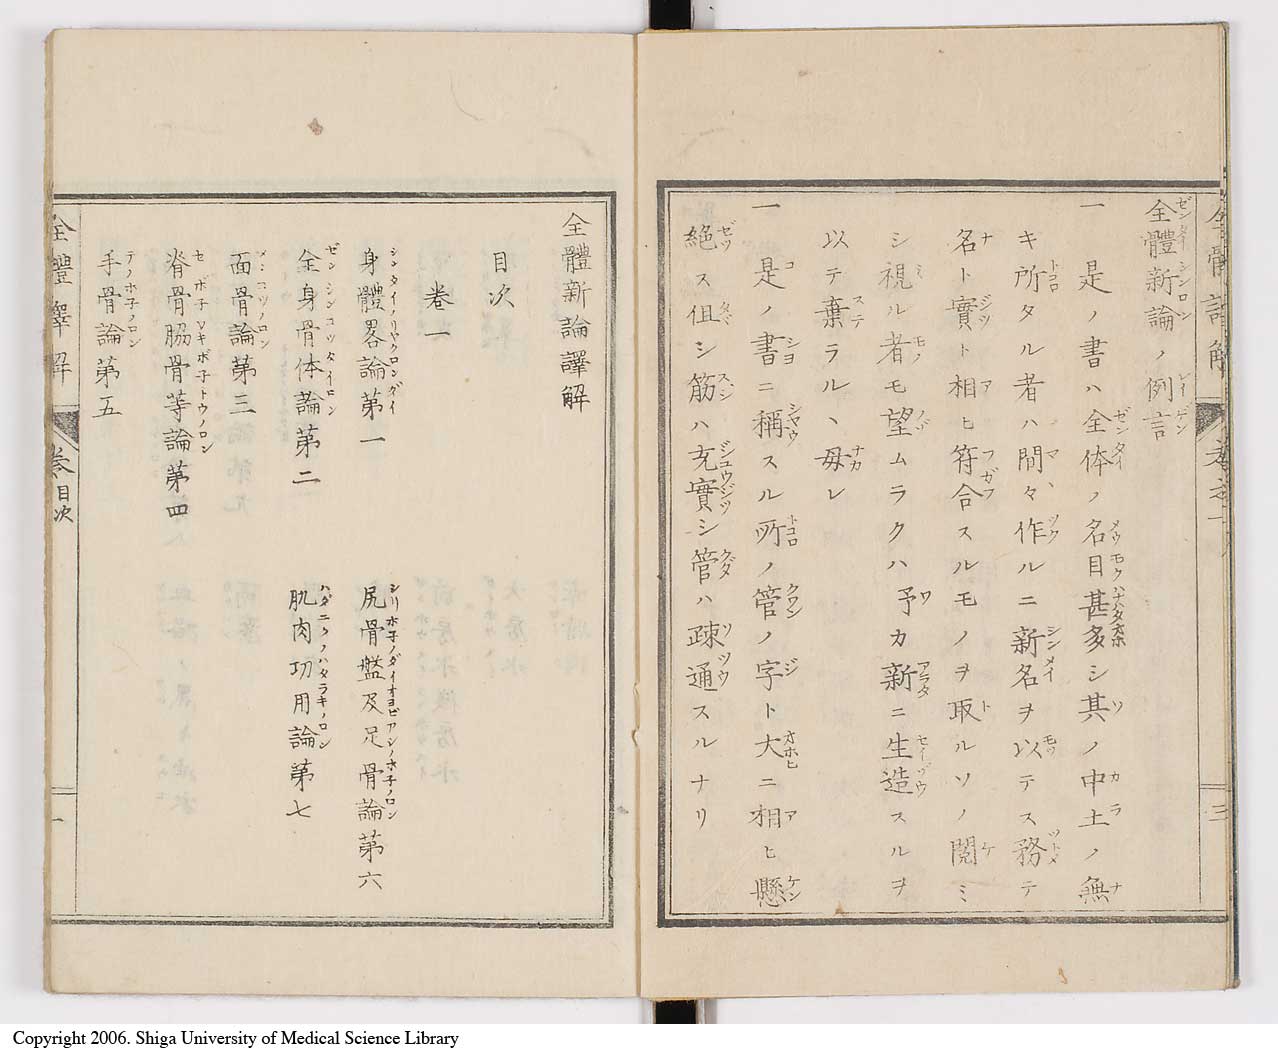 全體新論ノ例言
一 是ノ書ハ全体ノ名目甚多シ其ノ中土ノ無
キ所タル者ハ間々作ルニ新名ヲ以テス務テ
名ト實ト相ヒ符合スルモノヲ取ルソノ閲ミ
シ視ル者モ望ムラクハ予カ新ニ生造スルヲ
以テ棄ラルヽ毋レ
一 是ノ書ニ稱スル所ノ管ノ字ト大ニ相ヒ懸
絶ス伹シ筋ハ充實シ管ハ疎通スルナリ
全體譯解
三
全體新論譯解
目次
卷一
身體畧論第一
尻骨盤及足骨論第六
全身骨体論第二
肌肉功用論第七
面骨論第三
脊骨脇骨等論第四
手骨論第五
全體譯解
目次
一
Copyright 2006. Shiga University of Medical Science Library